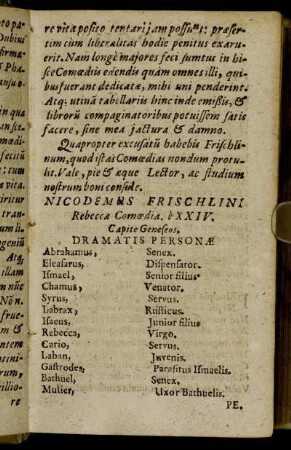 re vita posito tentari jam possunt: præser-
tim cùm liberalitas hodie penitus exaru-
erit. Nam longè majores feci sumtus in hi-
sce Comœdiis edendis quàm omnes illi, qui-
bus fuerant dedicatæ, mihi uni penderint.
Atq; utinā tabellariis hinc inde emißis, &
librorū compaginatoribus potuissem satis
facere, sine mea jactura & damno.
Quapropter excusatū habebis Frischli-
num, quod istas Comœdias nondum protu-
lit. Vale, pie & æque Lector, ac studium
nostrum boni consule.
NICODEMUS FRISCHLINI
Rebecca Comœdia. è XXIV.
Capite Geneseos.
DRAMATIS PERSONÆ
Abrahamus, Senex.
Eleasarus, Dispensator.
Ismael, Senior filius
Chamus, Venator.
Syrus, Servus.
Labrax, Rusticus.
Isacus, Junior filius
Rebecca, Virgo.
Cario, Servus.
Laban, Juvenis.
Gastrodes, Parasitus Ismaelis.
Bathuel, Senex.
Mulier, Uxor Bathuelis.
PE.